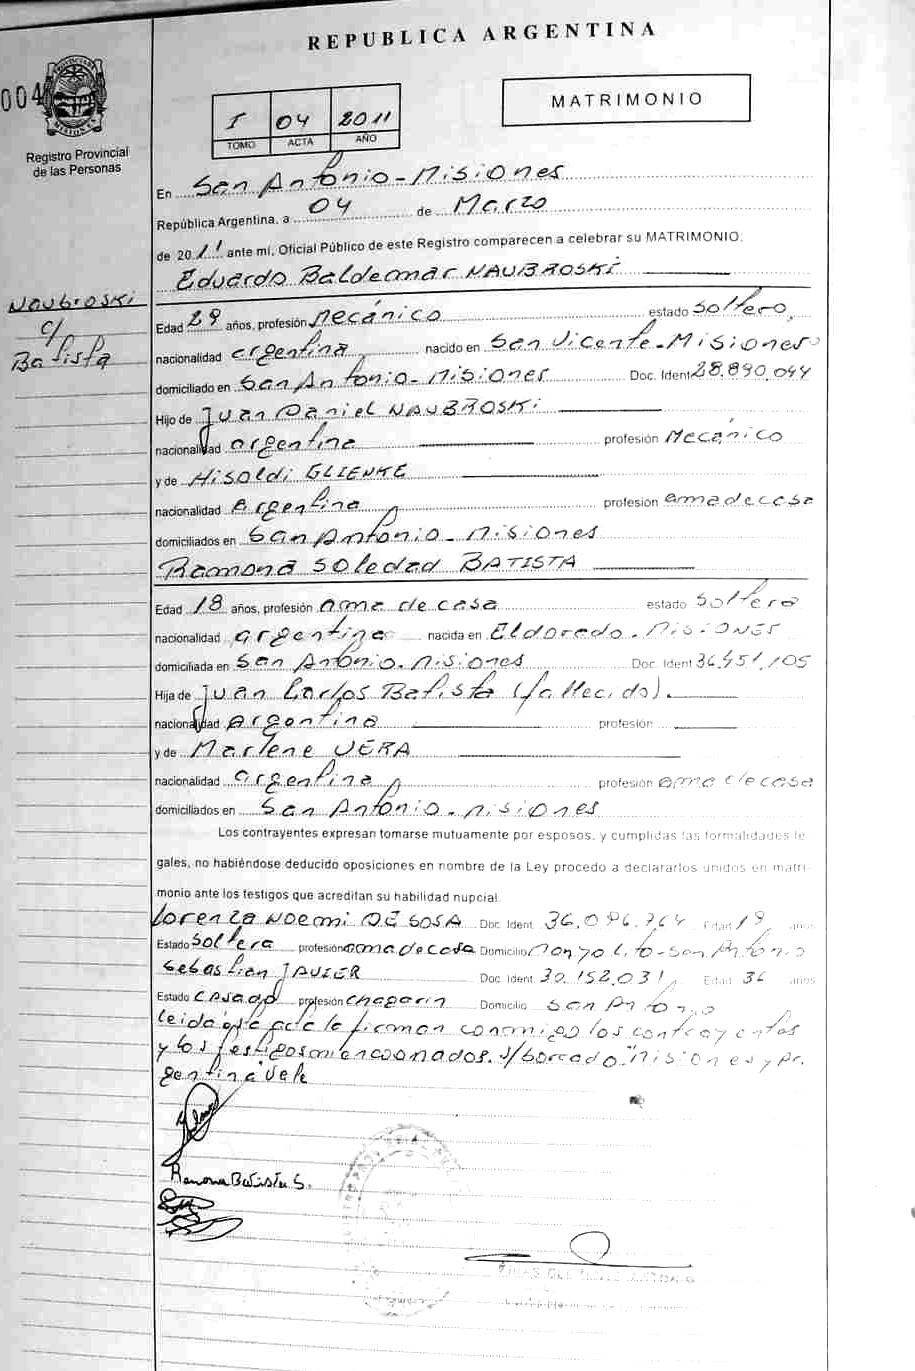 REPUBLICA ARGENTINA
004
Registro Provincial
de las Personas
I 04 2011
TOMO ACTA AÑO
MATRIMONIO
En San Antonio - Misiones
República Argentina, a 04 de Marzo
de 2011 ante mi, Oficial Público de este Registro comparecen a celebrar su MATRIMONIO:
Eduardo Baldemar NAUBROSKi
Naubroski
c/
Batista
Edad 29 años, profesión Mecánico estado Soltero,
nacionalidad argentina nacido en San Vicente - Misiones
domiciliado en San Antonio - Misiones Doc. Ident 28.890.044
Hijo de Juan Daniel NAUBROSKi
nacionalidad argentina profesión Mecánico
y de Hisoldi GLIENKE
nacionalidad Argentina profesión ama de casa
domiciliados en San Antonio - Misiones
Ramona Soledad BATISTA
Edad 18 años, profesión ama de casa estado Soltera
nacionalidad argentina nacida en Eldorado - MISIONES
domiciliada en San Antonio - Misiones Doc. Ident 36.451.105
Hija de Juan Carlos Batista (fallecido).
nacionalidad Argentina profesión
y de Marlene VERA
nacionalidad argentina profesión ama de casa
domiciliados en San Antonio - Misiones
Los contrayentes expresan tomarse mutuamente por esposos, y cumplidas las formalidades le
gales, no habiéndose deducido oposiciones en nombre de la Ley procedo a declararlos unidos en matri-
monio ante los testigos que acreditan su habilidad nupcial.
Lorenza Noemi DE SOSA Doc. Ident. 36.096.764 Edad 19 años
Estado Soltera profesión ama de casa Domicilio San Antonio
Sebastian JAVIER Doc. Ident. 30.152.031 Edad 36 años
Estado casado profesión Domicilio San Antonio
leida este acta la firman conmigo los contrayentes
y los testigos mencionados. s/borrado "Misiones y Ar-
gentina" Vale
Ramona Batista S.